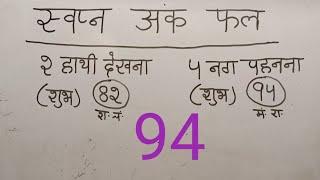 स्वप्न अंक फल
२ हाथी देखना   ५ नग पहनना
(शुभ) ८२   (शुभ) ९५
श. चं.   मं. रा.
94